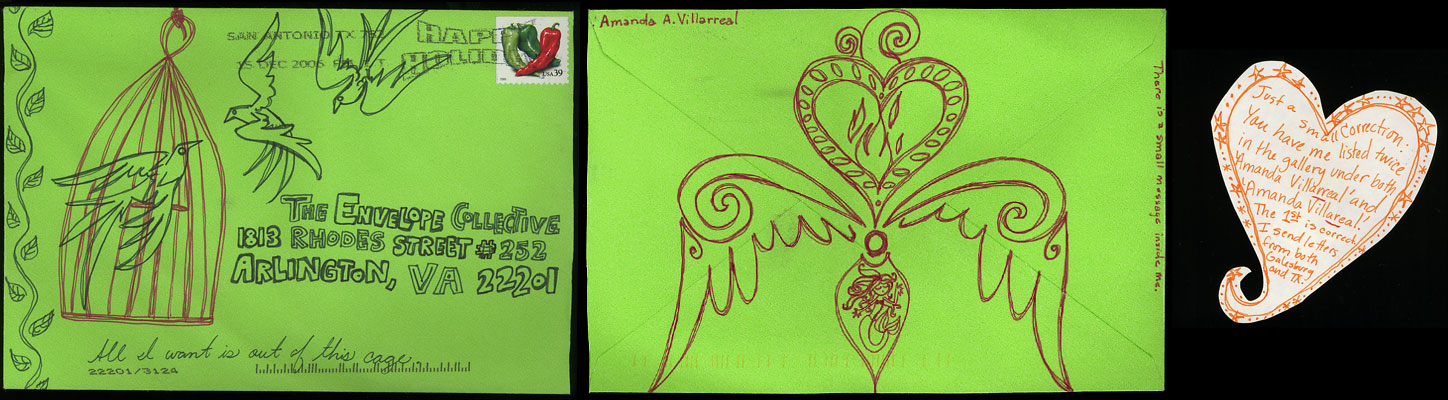 SAN ANTONIO TX 782
15 DEC 2006 PM
HAPPY
HOLID
USA 39
THE ENVELOPE COLLECTIVE
1813 RHODES STREET #252
ARLINGTON, VA 22201
All I want is out of this cage.
22201/3124
Amanda A. Villarreal
There is a small message inside me.
Just a
small correction.
You have me listed twice
in the gallery under both
'Amanda Villarreal' and
'Amanda Villareal'.
The 1st is correct.
I send letters
from both
Galesburg
and TX.